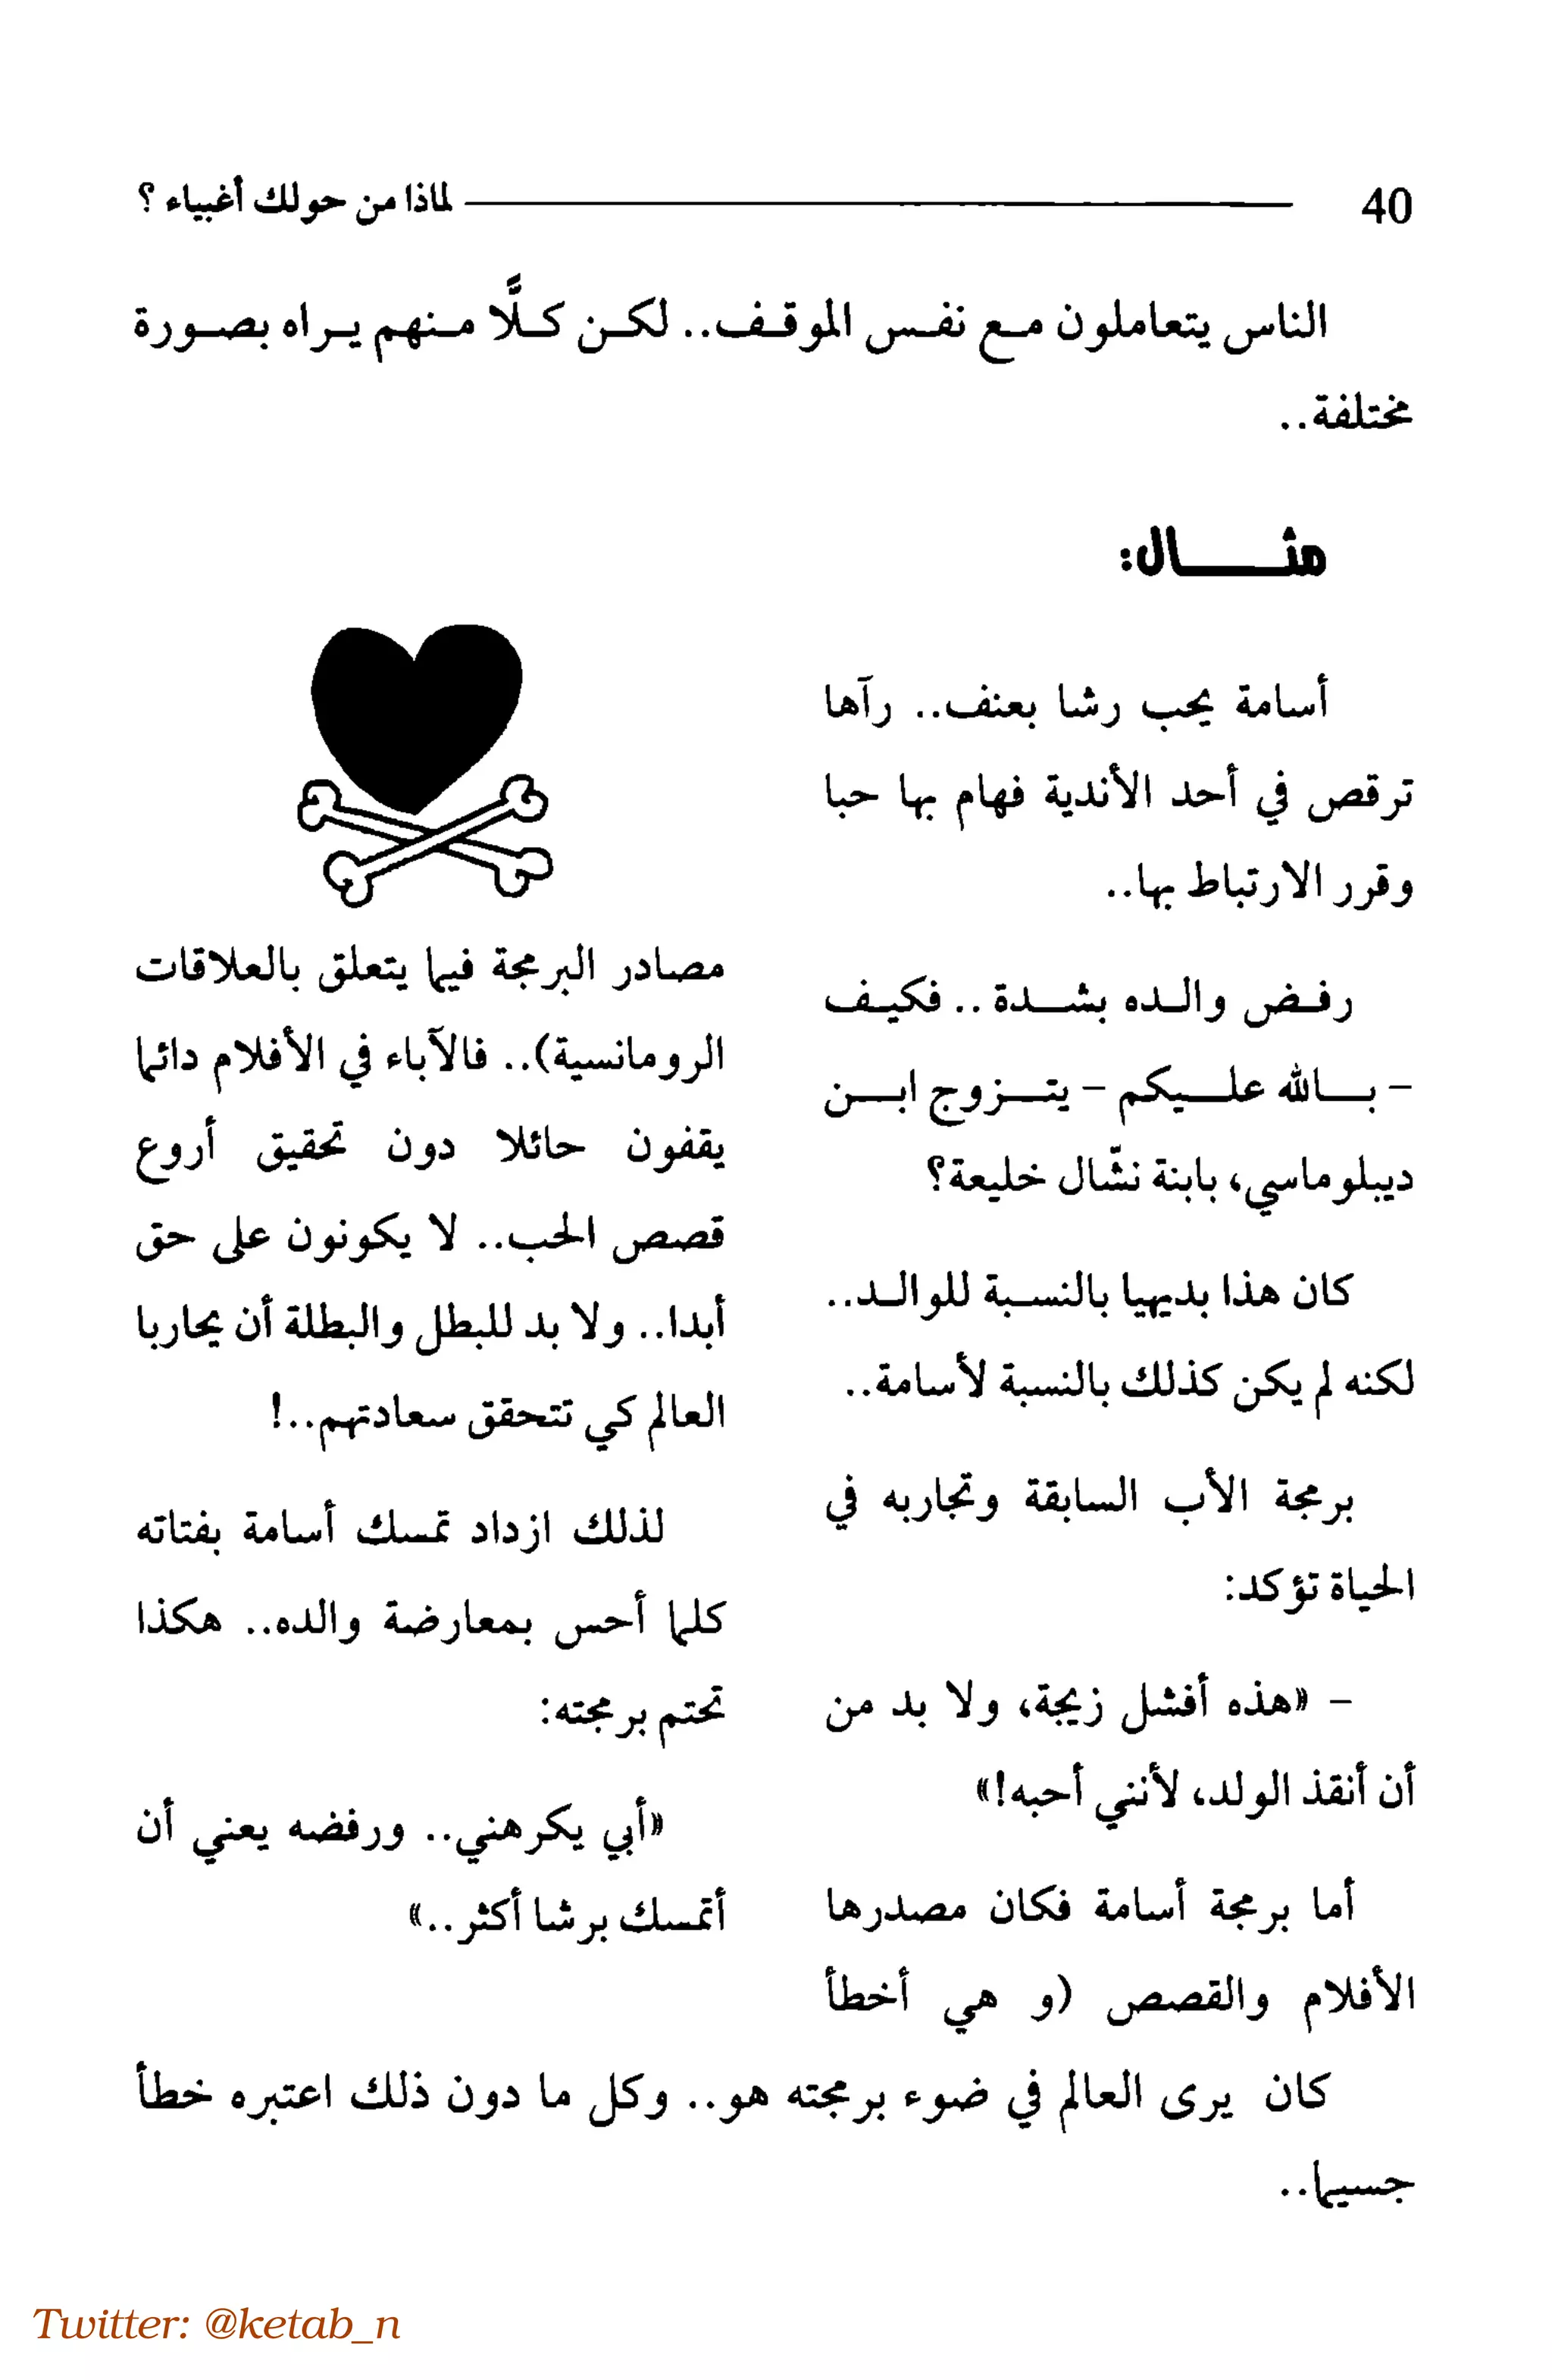 40 لماذا من حولك أغبياء ؟
الناس يتعاملون مع نفس الموقف.. لكن كلًّا منهم يراه بصورة
مختلفة..
مثال:
أسامة يحب رشا بعنف.. رآها
ترقص في أحد الأندية فهام بها حبا
وقرر الارتباط بها..
رفض والده بشدة.. فكيف
- بالله عليكم - يتزوج ابن
ديبلوماسي، بابنة نشّال خليعة؟
كان هذا بديهيا بالنسبة للوالد..
لكنه لم يكن كذلك بالنسبة لأسامة..
برمجة الأب السابقة وتجاربه في
الحياة تؤكد:
- «هذه أفشل زيجة، ولا بد من
أن أنقذ الولد، لأنني أحبه!»
أما برمجة أسامة فكان مصدرها
الأفلام والقصص (و هي أخطأ
مصادر البرمجة فيما يتعلق بالعلاقات
الرومانسية).. فالآباء في الأفلام دائما
يقفون حائلا دون تحقيق أروع
قصص الحب.. لا يكونون على حق
أبدا.. ولا بد للبطل والبطلة أن يحاربا
العالم كي تتحقق سعادتهم..!
لذلك ازداد تمسك أسامة بفتاته
كلما أحس بمعارضة والده.. هكذا
تحتم برمجته:
«أبي يكرهني.. ورفضه يعني أن
أتمسك برشا أكثر..»
كان يرى العالم في ضوء برمجته هو.. وكل ما دون ذلك اعتبره خطأ
جسيما..
Twitter: @ketab_n